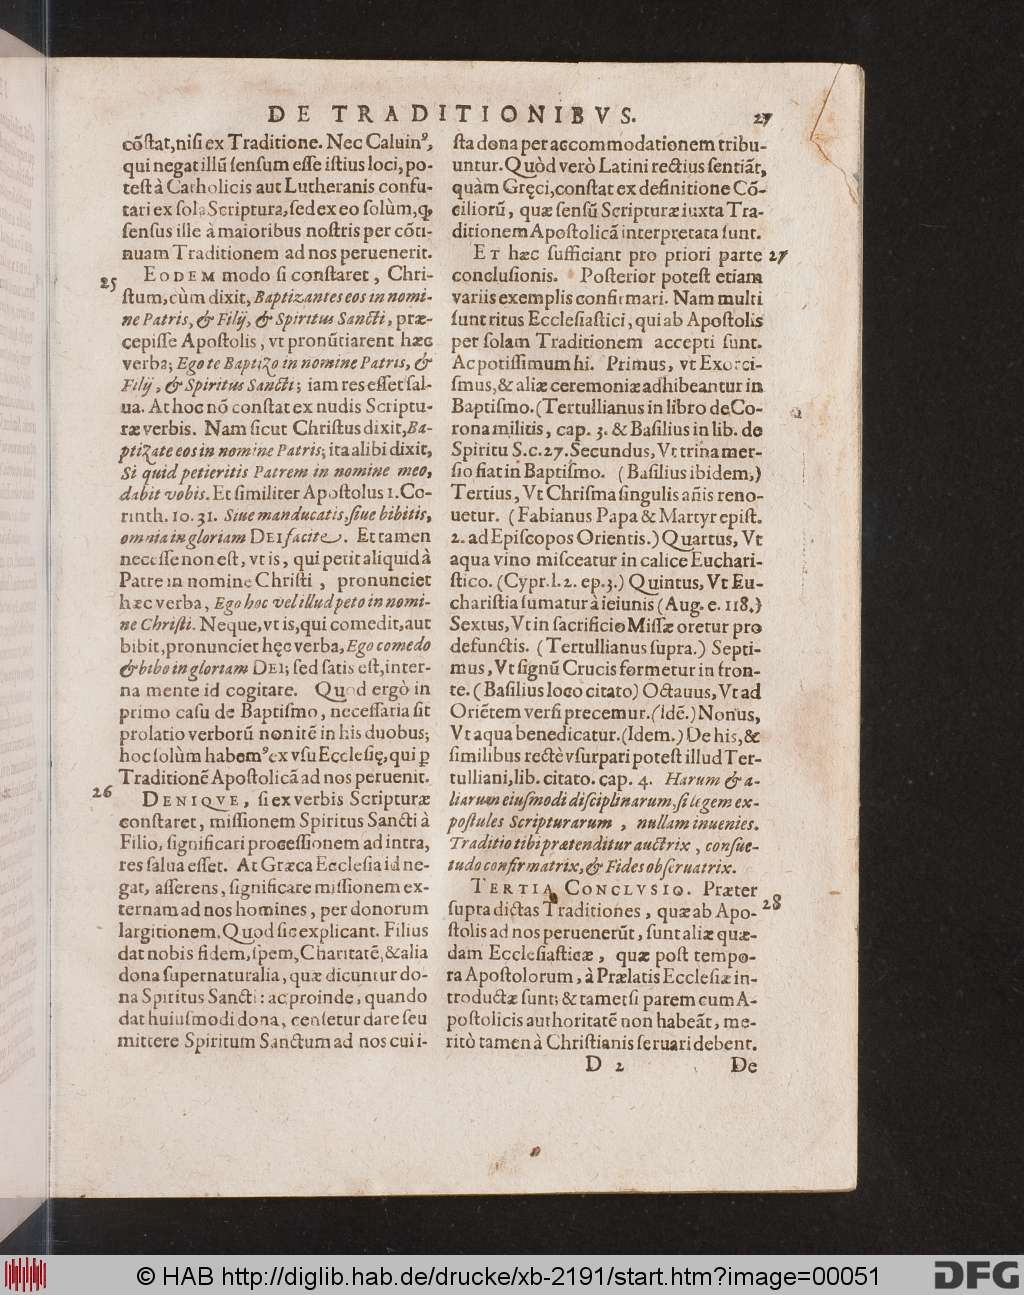 DE TRADITIONIBVS.
27
cõſtat, niſi ex Traditione. Nec Caluinꝰ,
qui negat illũ ſenſum eſſe iſtius loci, po-
teſt à Catholicis aut Lutheranis confu-
tari ex ſola Scriptura, ſed ex eo ſolùm, ꝙ
ſenſus ille à maioribus noſtris per cõti-
nuam Traditionem ad nos peruenerit.
25
EODEM modo ſi conſtaret, Chri-
ſtum, cùm dixit, Baptizantes eos in nomi-
ne Patris, & Filij, & Spiritus Sancti, præ-
cepiſſe Apoſtolis, vt pronũtiarent hæc
verba; Ego te Baptizo in nomine Patris, &
Filij, & Spiritus Sancti; iam res eſſet ſal-
ua. At hoc nõ conſtat ex nudis Scriptu-
ræ verbis. Nam ſicut Chriſtus dixit, Ba-
ptizate eos in nomine Patris; ita alibi dixit,
Si quid petieritis Patrem in nomine meo,
dabit vobis. Et ſimiliter Apoſtolus 1. Co-
rinth. 10. 31. Siue manducatis, ſiue bibitis,
omnia in gloriam DEI facite. Et tamen
neceſſe non eſt, vt is, qui petit aliquid à
Patre in nomine Chriſti, pronunciet
hæc verba, Ego hoc vel illud peto in nomi-
ne Chriſti. Neque, vt is, qui comedit, aut
bibit, pronunciet hęc verba, Ego comedo
& bibo in gloriam DEI; ſed ſatis eſt, inter-
na mente id cogitare. Quod ergò in
primo caſu de Baptiſmo, neceſſaria ſit
prolatio verborũ non itẽ in his duobus;
hoc ſolùm habemꝰ ex vſu Eccleſię, qui ꝑ
Traditionẽ Apoſtolicã ad nos peruenit.
26
DENIQVE, ſi ex verbis Scripturæ
conſtaret, miſſionem Spiritus Sancti à
Filio, ſignificari proceſſionem ad intra,
res ſalua eſſet. At Græca Eccleſia id ne-
gat, aſſerens, ſignificare miſſionem ex-
ternam ad nos homines, per donorum
largitionem. Quod ſic explicant. Filius
dat nobis fidem, ſpem, Charitatẽ, & alia
dona ſupernaturalia, quæ dicuntur do-
na Spiritus Sancti: ac proinde, quando
dat huiuſmodi dona, cenſetur dare ſeu
mittere Spiritum Sanctum ad nos cui i-
ſta dona per accommodationem tribu-
untur. Quòd verò Latini rectius ſentiãt,
quàm Gręci, conſtat ex definitione Cõ-
ciliorũ, quæ ſenſũ Scripturæ iuxta Tra-
ditionem Apoſtolicã interpretata ſunt.
ET hæc ſufficiant pro priori parte
27
concluſionis. Poſterior poteſt etiam
variis exemplis confirmari. Nam multi
ſunt ritus Eccleſiaſtici, qui ab Apoſtolis
per ſolam Traditionem accepti ſunt.
Ac potiſſimum hi. Primus, vt Exorci-
ſmus, & aliæ ceremoniæ adhibeantur in
Baptiſmo. (Tertullianus in libro de Co-
rona militis, cap. 3. & Baſilius in lib. de
Spiritu S. c. 27. Secundus, Vt trina mer-
ſio fiat in Baptiſmo. (Baſilius ibidem,)
Tertius, Vt Chriſma ſingulis añis reno-
uetur. (Fabianus Papa & Martyr epiſt.
2. ad Epiſcopos Orientis.) Quartus, Vt
aqua vino miſceatur in calice Euchari-
ſtico. (Cypr. l. 2. ep. 3.) Quintus, Vt Eu-
chariſtia ſumatur à ieiunis (Aug. e. 118.)
Sextus, Vt in ſacrificio Miſſæ oretur pro
defunctis. (Tertullianus ſupra.) Septi-
mus, Vt ſignũ Crucis formetur in fron-
te. (Baſilius loco citato) Octauus, Vt ad
Oriẽtem verſi precemur. (Idẽ.) Nonus,
Vt aqua benedicatur. (Idem.) De his, &
ſimilibus rectè vſurpari poteſt illud Ter-
tulliani, lib. citato. cap. 4. Harum & a-
liarum eiuſmodi diſciplinarum, ſi legem ex-
poſtules Scripturarum, nullam inuenies.
Traditio tibi prætenditur auctrix, conſue-
tudo confirmatrix, & Fides obſeruatrix.
TERTIA CONCLVSIO. Præter
28
ſupra dictas Traditiones, quæ ab Apo-
ſtolis ad nos peruenerũt, ſunt aliæ quæ-
dam Eccleſiaſticæ, quæ poſt tempo-
ra Apoſtolorum, à Prælatis Eccleſiæ in-
troductæ ſunt; & tametſi parem cum A-
poſtolicis authoritatẽ non habeãt, me-
ritò tamen à Chriſtianis ſeruari debent.
D 2
De
© HAB http://diglib.hab.de/drucke/xb-2191/start.htm?image=00051
DFG